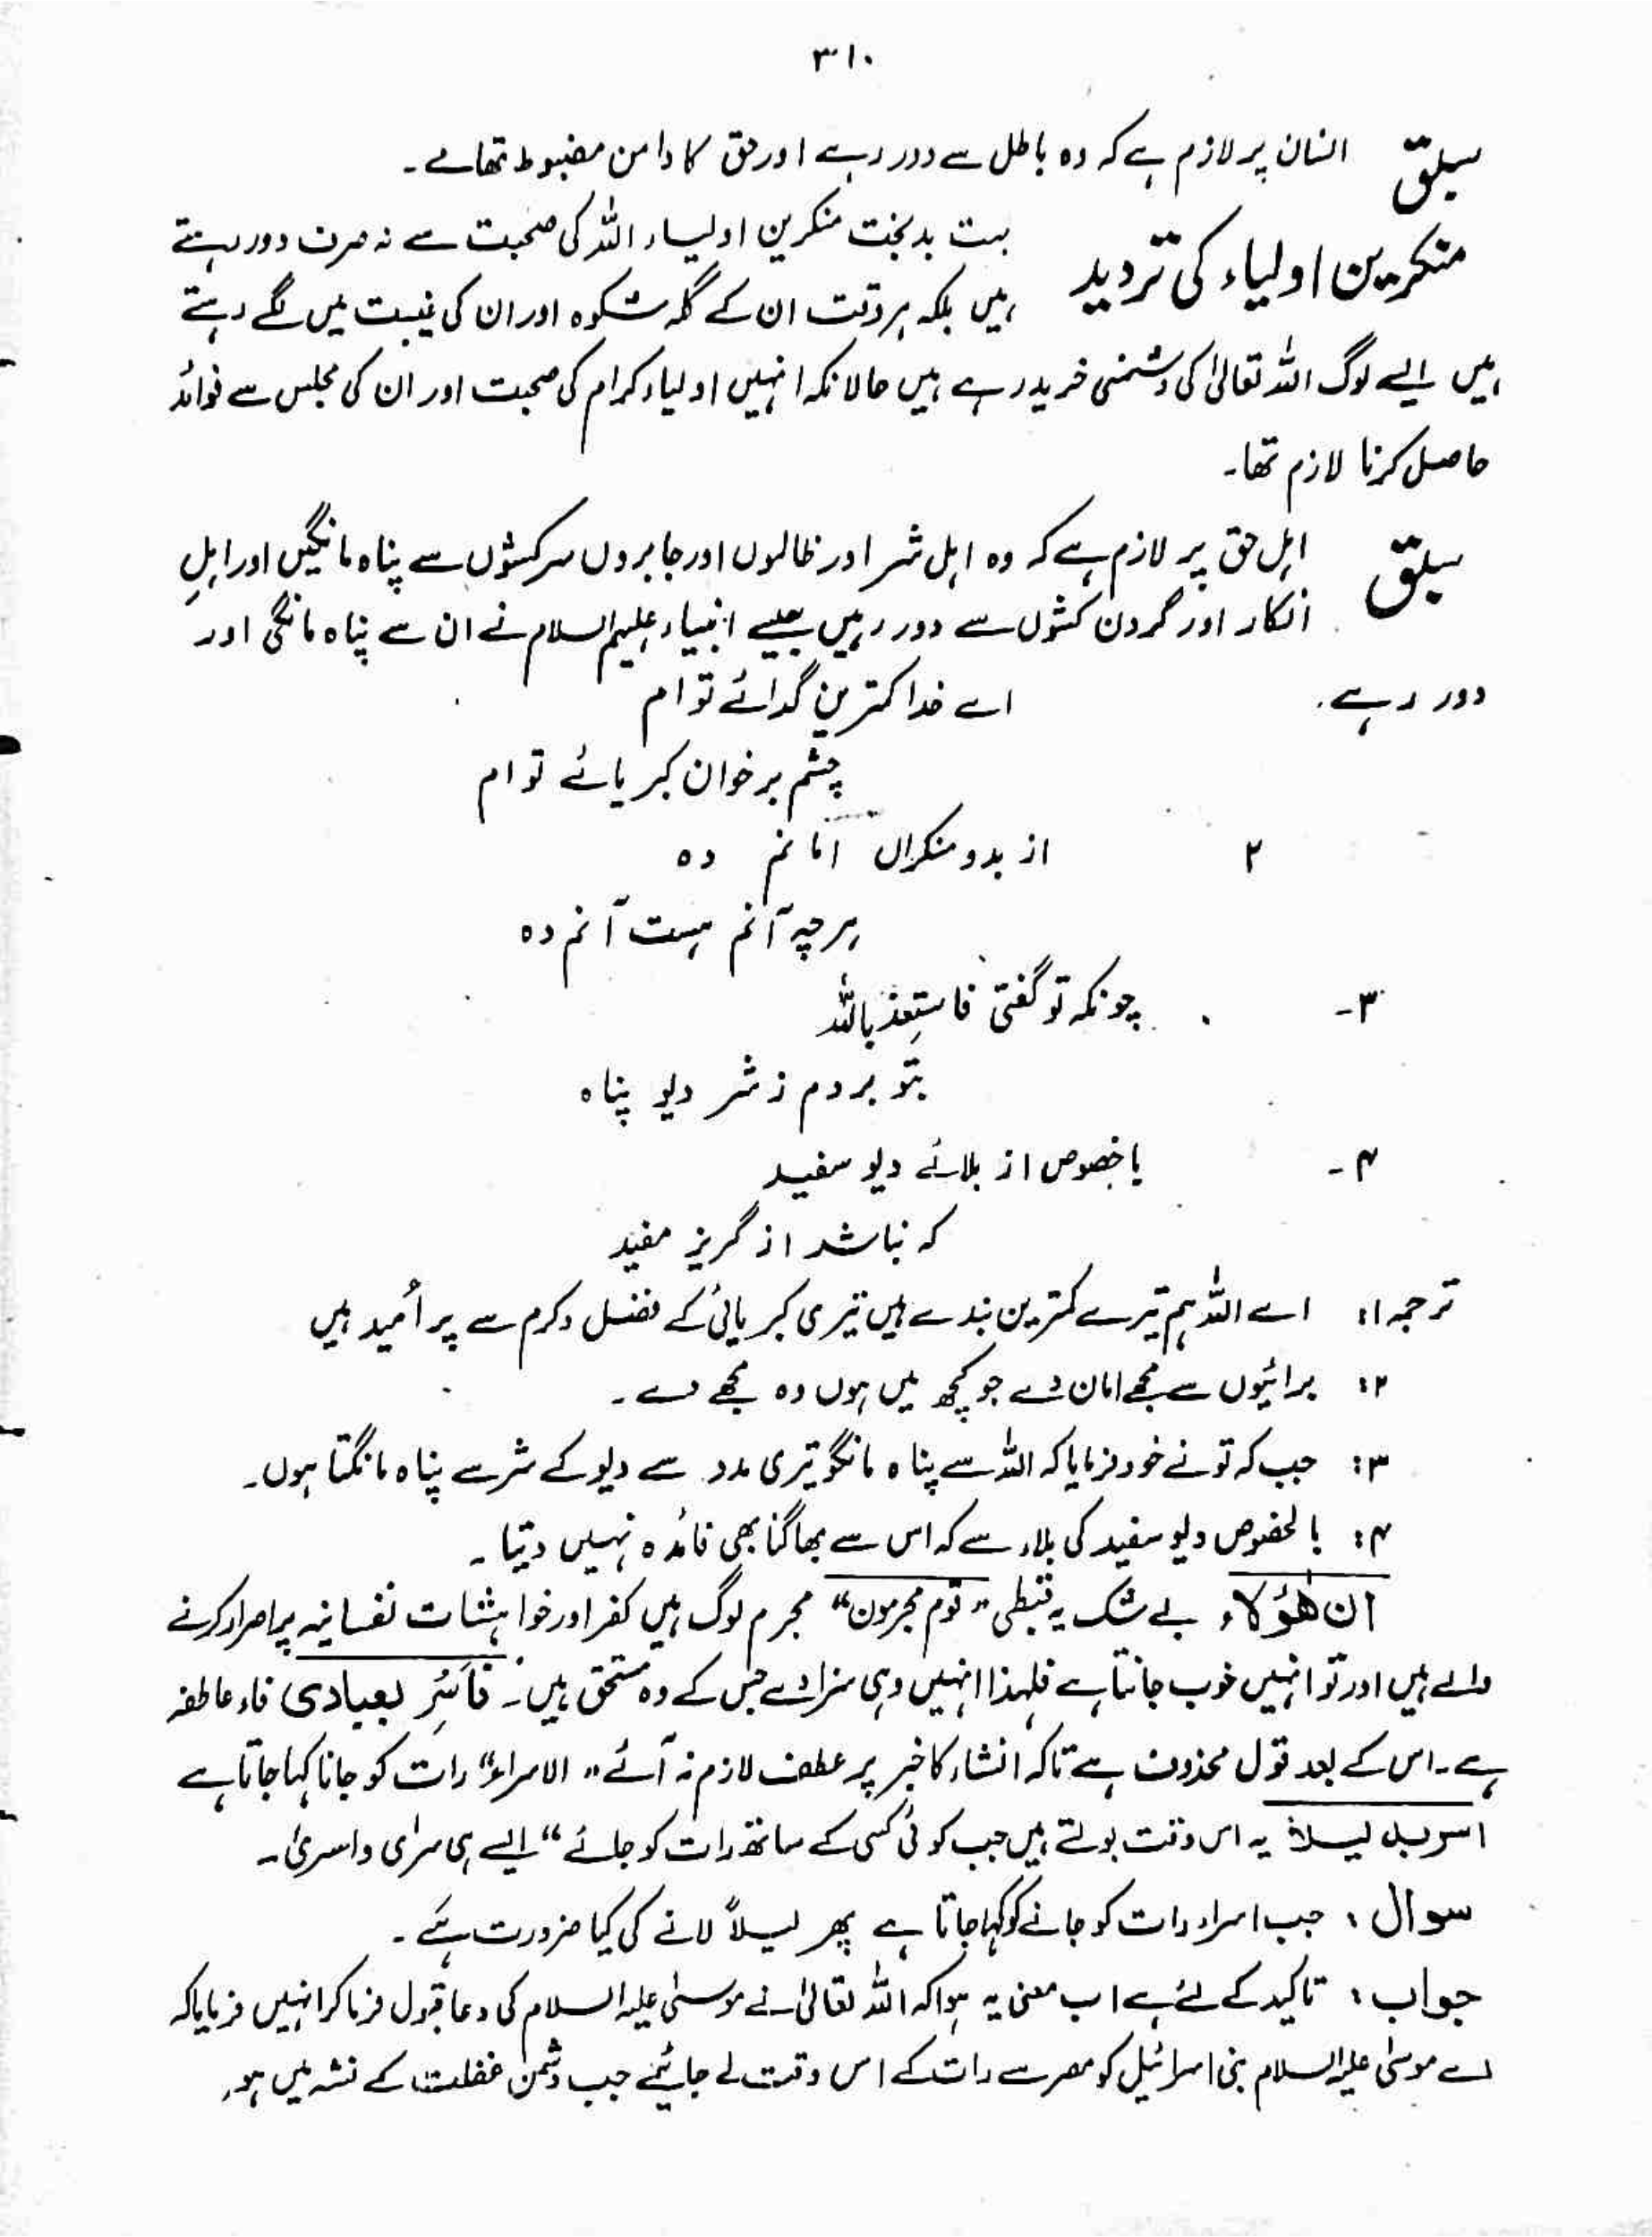 ۳۱۰
سبق انسان پر لازم ہے کہ وہ باطل سے دور رہے اور حق کا دامن مضبوط تھامے۔
منکرین اولیاء کی تردید بہت بدبخت منکرین اولیاء اللہ کی صحبت سے نہ صرف دور رہتے
ہیں بلکہ ہر وقت ان کے گلہ شکوہ اور ان کی غیبت میں لگے رہتے
ہیں ایسے لوگ اللہ تعالیٰ کی دشمنی خرید رہے ہیں حالانکہ انہیں اولیاء کرام کی صحبت اور ان کی مجلس سے فوائد
حاصل کرنا لازم تھا۔
سبق اہل حق پر لازم ہے کہ وہ اہل شر اور ظالموں اور جابروں سرکشوں سے پناہ مانگیں اور اہلِ
انکار اور گردن کشوں سے دور رہیں جیسے انبیاء علیہم السلام نے ان سے پناہ مانگی اور
دور رہے۔ اے خدا کمترین گدائے تو ام
چشم بر خوان کبریائے تو ام
۲ از بد و منکراں امانم دہ
ہر چہ آنم ہست آنم دہ
۳۔ چونکہ تو گفتی فاستعِذ باللہ
بتو بردم ز شر دیو پناہ
۴۔ باخصوص از بلائے دیو سفید
کہ نباشد از گریز مفید
ترجمہ ۱: اے اللہ ہم تیرے کمترین بندے ہیں تیری کبریائی کے فضل وکرم سے پر اُمید ہیں
۲: برائیوں سے مجھے امان دے جو کچھ میں ہوں وہ مجھے دے۔
۳: جب کہ تو نے خود فرمایا کہ اللہ سے پناہ مانگو تیری مدد سے دیو کے شر سے پناہ مانگتا ہوں۔
۴: بالخصوص دیو سفید کی بلاء سے کہ اس سے بھاگنا بھی فائدہ نہیں دیتا۔
ان ھٰؤلاء بے شک یہ قبطی "قوم مجرمون" مجرم لوگ ہیں کفر اور خواہشات نفسانیہ پر اصرار کرنے
والے ہیں اور تو انہیں خوب جانتا ہے فلہذا انہیں وہی سزا دے جس کے وہ مستحق ہیں۔ فَاَسْرِ بعبادی فاء عاطفہ
ہے۔ اس کے بعد قول محذوف ہے تاکہ انشاء کا خبر پر عطف لازم نہ آئے "الاسراء" رات کو جانا کہا جاتا ہے
اسر بہ لیلاً یہ اس وقت بولتے ہیں جب کوئی کسی کے ساتھ رات کو جائے" ایسے ہی سرٰی واسریٰ۔
سوال: جب اسراء رات کو جانے کو کہا جاتا ہے پھر لیلاً لانے کی کیا ضرورت ہے۔
جواب: تاکید کے لئے ہے اب معنی یہ ہوا کہ اللہ تعالیٰ نے موسیٰ علیہ السلام کی دعا قبول فرما کر انہیں فرمایا کہ
اے موسیٰ علیہ السلام بنی اسرائیل کو مصر سے رات کے اس وقت لے جائیے جب دشمن غفلت کے نشہ میں ہو۔